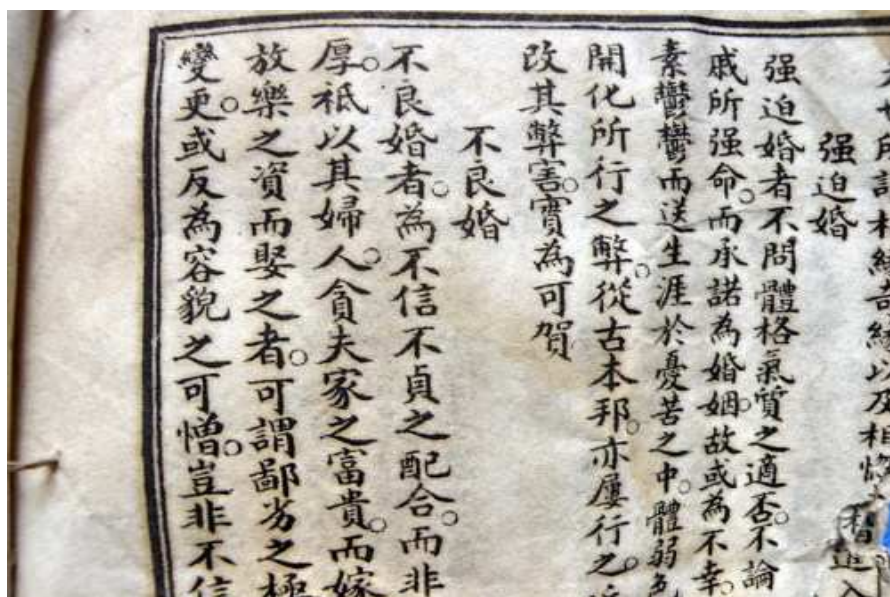 强迫婚
强迫婚者不問體格氣質之適否。不論
戚所强命。而承諾為婚姻。故或為不幸。
素鬱鬱而送生涯於憂苦之中。體弱
開化所行之弊。從古本邦。亦屢行之。
改其弊害。實為可賀
不良婚
不良婚者。為不信不貞之配合。而非
厚。祗以其婦人。貪夫家之富貴。而嫁
放樂之資而娶之者。可謂鄙劣之極
變更。或反為容貌之可憎。豈非不信